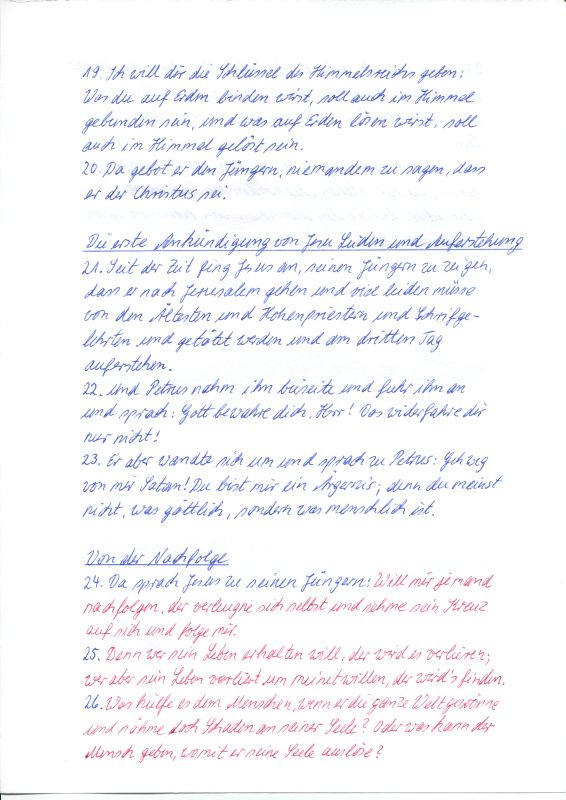 19. Ich will dir die Schlüssel des Himmelreichs geben:
Was du auf Erden binden wirst, soll auch im Himmel
gebunden sein, und was auf Erden lösen wirst, soll
auch im Himmel gelöst sein.
20. Da gebot er den Jüngern, niemandem zu sagen, dass
er der Christus sei.
Die erste Ankündigung von Jesu Leiden und Auferstehung
21. Seit der Zeit fing Jesus an, seinen Jüngern zu zeigen,
dass er nach Jerusalem gehen und viel leiden müsse
von den Ältesten und Hohenpriestern und Schrifge-
lehrten und getötet werden und am dritten Tag
auferstehen.
22. Und Petrus nahm ihn beiseite und fuhr ihn an
und sprach: Gott bewahre dich, Herr! Das widerfahre dir
nur nicht!
23. Er aber wandte sich um und sprach zu Petrus: Geh weg
von mir Satan! Du bist mir ein Ärgernis; denn du meinst
nicht, was göttlich, sondern was menschlich ist.
Von der Nachfolge
24. Da sprach Jesus zu seinen Jüngern: Will mir jemand
nachfolgen, der verleugne sich selbst und nehme sein Kreuz
auf sich und folge mir.
25. Denn wer sein Leben erhalten will, der wird es verlieren;
wer aber sein Leben verliert um meinetwillen, der wird's finden.
26. Was hülfe es dem Menschen, wenn er die ganze Welt gewönne
und nähme doch Schaden an seiner Seele? Oder was kann der
Mensch geben, womit er seine Seele auslöse?